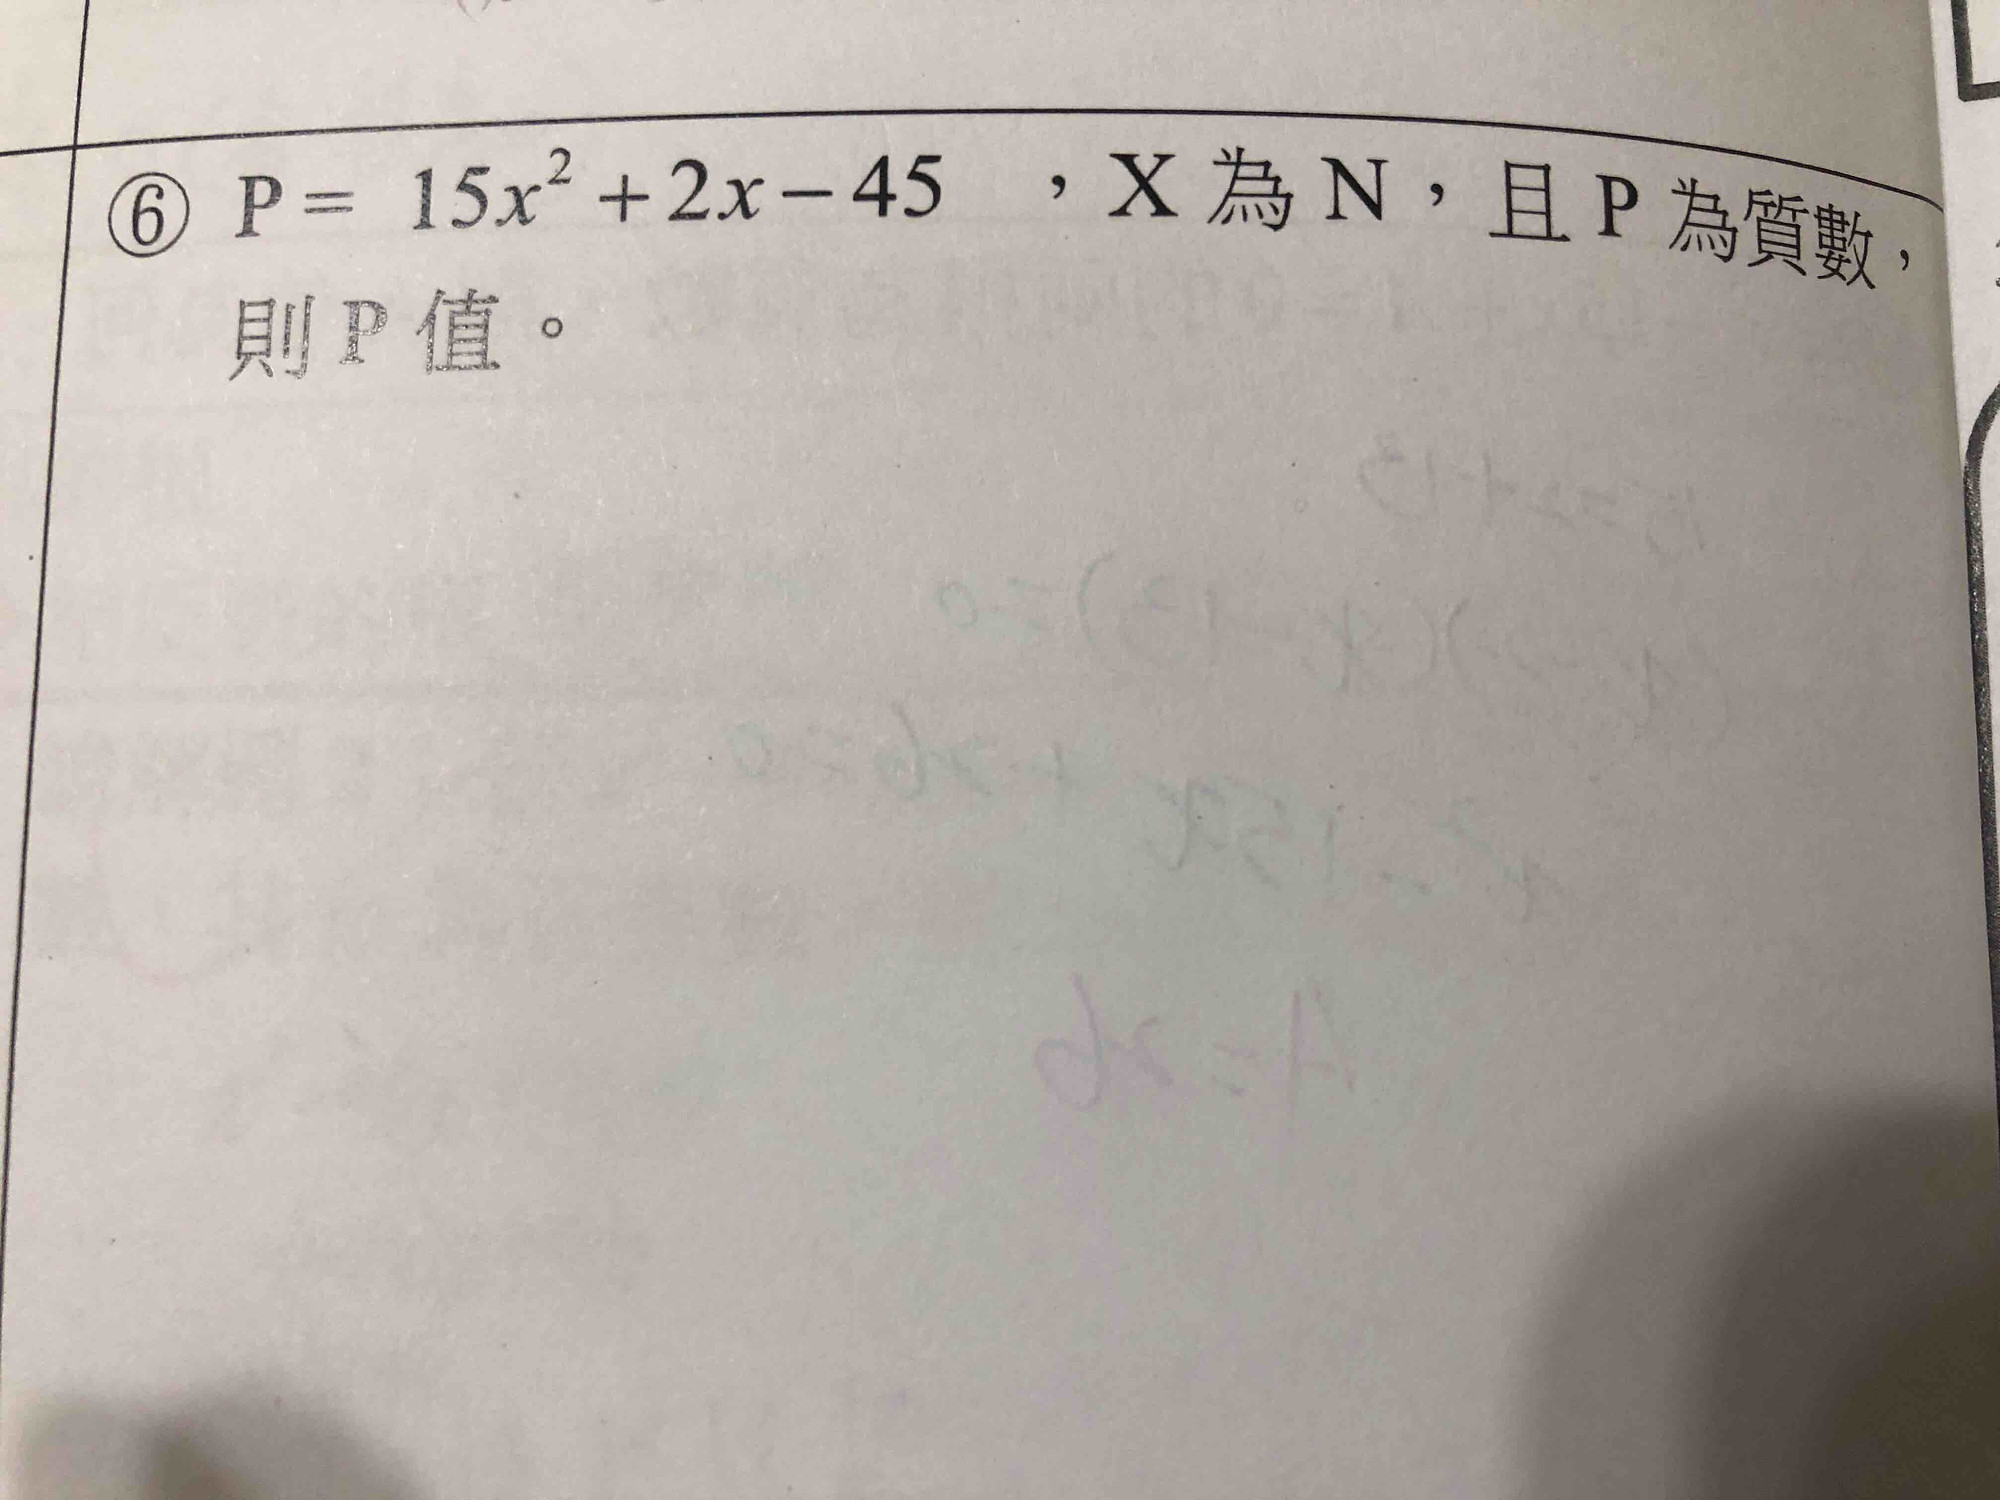 ⑥ P= 15x² +2x−45 ，X 為 N，且 P 為質數，
則 P 值。